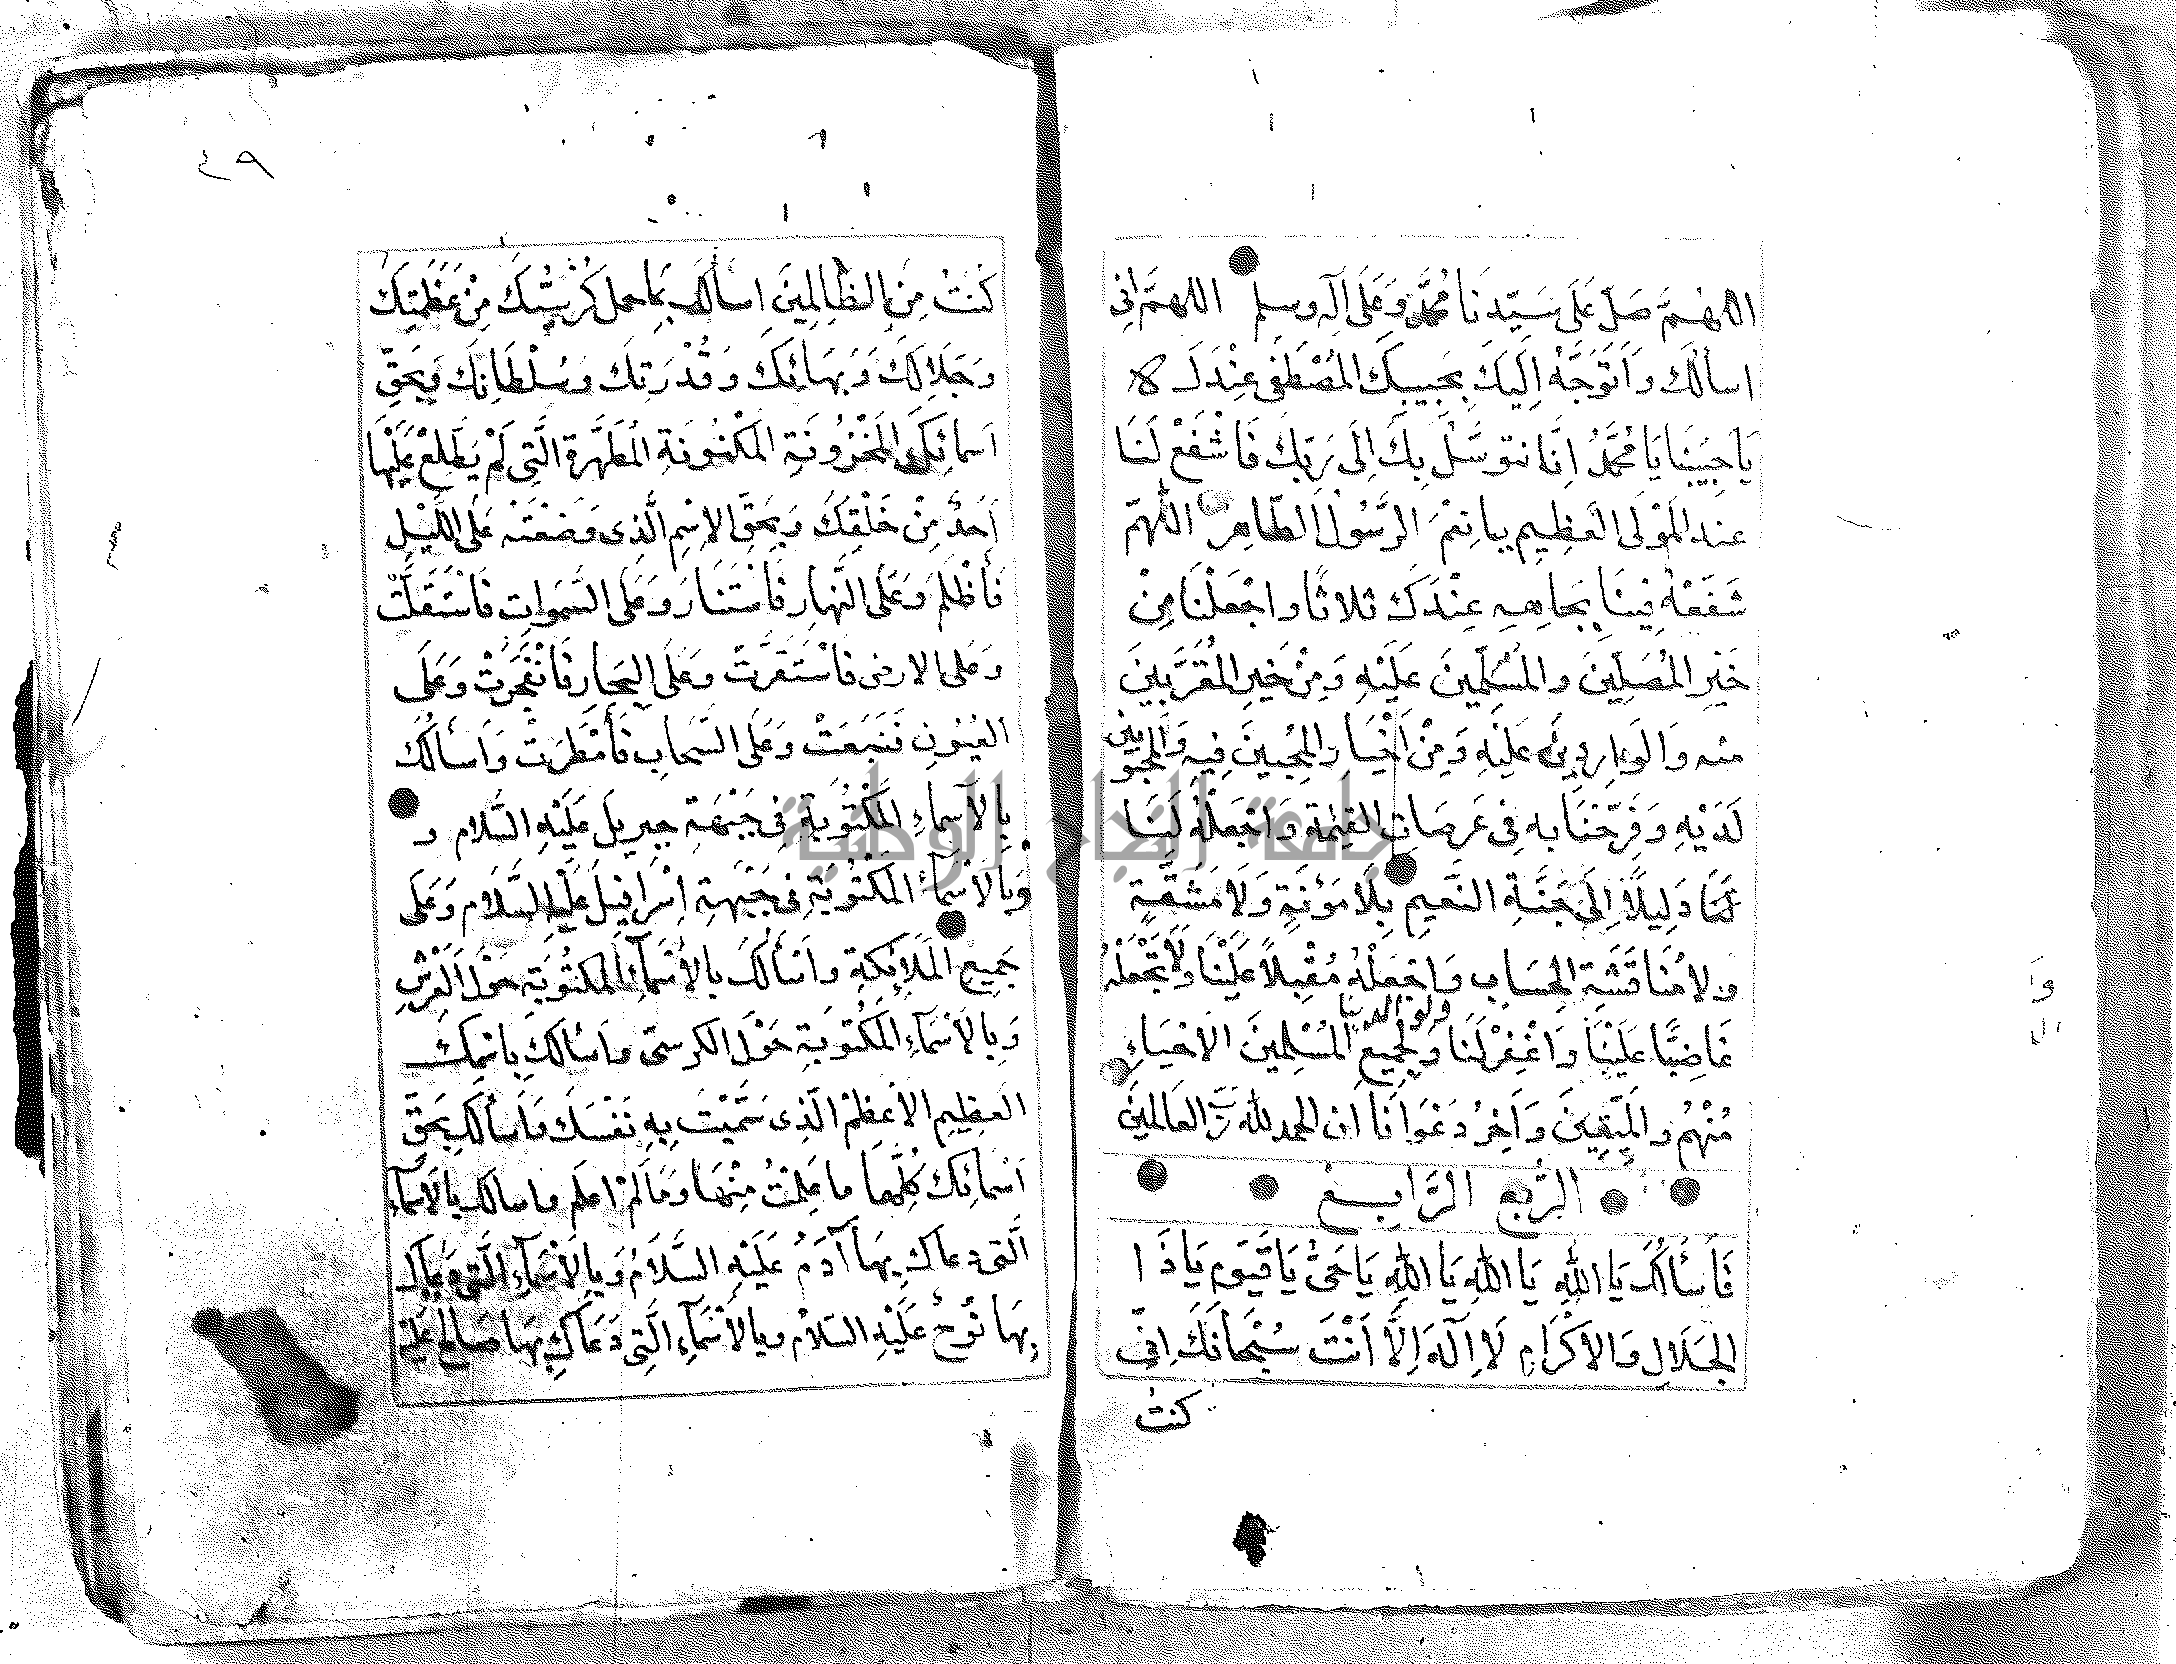 اللهُمَّ صَلّ عَلَى سَيّدنَا مُحَمَّدٍ وَعَلَى آلِهِ وسلم اللهمَّ اِنِى
اسالكَ وَاَتَوَجَّهُ اِلَيكَ بِحَبِيبِكَ المُصْطَفَى عِنْدَكَ
يَاحَبِيبَنَا يَا مُحَمَّدُ اِنَّا نتوسَّلُ بِكَ اِلَى رَبّكَ فَاشْفَعْ لَنَا
عندَ المَوْلَى العَظِيمِ يا نِعْمَ الرَّسُولُ الطَّاهِرُ اللهمّ
شَفّعْهُ فِينَا بِجَاهِهِ عِنْدَكَ ثلاثًا واجْعَلْنَا مِنْ
خَيْرِ المُصَلِّينَ والمُسَلّمِينَ عَلَيْهِ وَمِنْ خَيرِ المُقَرَّبِينَ
منه وَالوَارِدِينَ عَلَيْهِ وَمِنْ اَخْيَارِ المُحِبّينَ فِيهِ وَالمَحْبُوبين
لَدَيْهِ وَفَرِّحْنَا بِهِ فِى عَرَصَاتِ القِيمَةِ وَاجْعَلْهُ لَنَا
دَلِيلاً اِلَى جَنَّةِ النَّعِيمِ بِلاَ مَؤنَةٍ وَلاَ مَشَقَّةٍ
ولا مُنَاقَشَةِ الحِسَابِ وَاجْعَلْهُ مُقْبِلاً عَلَيْنَا وَلاَ تَجْعَلْهُ
غَاضِبًا عَلَيْنَا وَاغْفِرْ لَنَا ولوالدينا وَلِجَمِيعِ المُسْلِمِينَ الاَحْيَاءِ
مِنْهُمْ وَالمَيّتِينَ وَآخِرُ دَعْوَانَا ان الحمد لله رَبّ العَالمِينَ
الرُّبع الرَّابِع
فَأَسْأَلُكَ يَا اللهُ يَا اللهُ يَا اللهُ يَا حَىُّ يَا قَيّوم يَا ذَا
الجَلاَلِ وَالاِكْرَامِ لاَ اِلَهَ اِلاَّ اَنْتَ سُبْحَانَكَ اِنّى
كنتُ
٤٩
كُنْتُ مِنَ الظَّالِمِينَ اسأَلُكَ بِمَا حمل كُرْسِيُّكَ مِنْ عَظَمَتِكَ
وَجَلاَلِكَ وَبَهَائِكَ وَقُدْرَتِكَ وَسُلْطَانِكَ وَبِحَقّ
اَسمائِكَ المَخْزُونَةِ المَكْنُونَةِ المُطَهَّرَةِ الَّتِى لَمْ يَطَّلِعْ عَلَيْهَا
اَحَدٌ مِنْ خَلْقِكَ وَبِحَقّ الاِسْمِ الَّذِى وَضَعْتَهُ عَلَى اللَّيْلِ
فَأَظْلَمَ وَعَلَى النَّهارِ فَاسْتَنَارَ وَعَلَى السَّمَوَاتِ فَاسْتَقَلَّتْ
وَعَلَى الارضِ فَاسْتَقَرَّتْ وَعَلَى البِحَارِ فَانْفَجَرَتْ وَعَلَى
العُيُونِ فَنَبَعَتْ وَعَلَى السَّحَابِ فَأَمْطَرَتْ وَاَسأَلُكَ
بِالاَسْمَاءِ المَكْتُوبَةِ فِى جَبْهَةِ جبريلَ عَلَيْهِ السَّلام و
وَبِالاَسْمَاءِ المَكْتُوبَةِ فِى جَبْهَةِ اِسْرَافِيلَ عَلَيْهِ السَّلاَم وَعَلَى
جَمِيعِ المَلاَئِكَةِ وَاَسْأَلُكَ بِالاَسْمَاءِ المَكْتُوبَةِ حَوْلَ العَرْشِ
وَبِالاَسْمَاءِ المَكْتُوبَةِ حَوْلَ الكرسىّ واَسْأَلُكَ باسْمِكَ
العَظِيمِ الاَعْظَمِ الَّذِى سَمَّيْتَ بِهِ نَفْسَكَ وَاَسْأَلُكَ بِحَقّ
اَسْمَائِكَ كُلِّهَا مَا عَلِمْتُ مِنْهَا وَمَا لَمْ اعلَم واسالك بِالاَسْمَاءِ
الَّتِى دعاكَ بِهَا آدَمُ عَلَيْهِ السَّلاَمُ وَبِالاَسْمَاءِ الَّتِى دَعَاكَ
بِهَا نُوحٌ عَلَيْهِ السَّلاَمُ وبِالاَسْمَاءِ الَّتِى دَعَاكَ بِهَا صَالِحٌ عَلَيْهِ
جامعة النجاح الوطنية